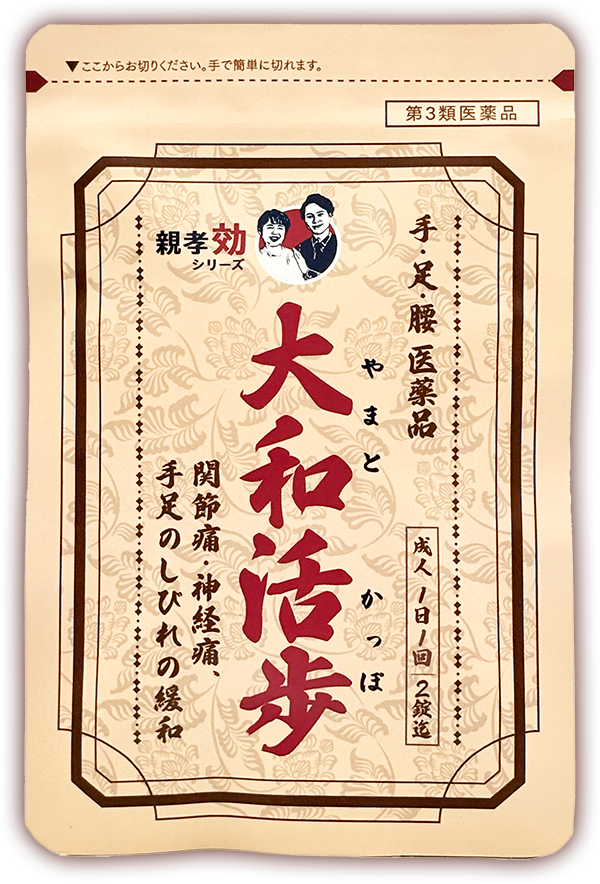 ▼ここからお切りください。手で簡単に切れます。
第3類医薬品
親孝効
シリーズ
手・足・腰 医薬品
成人1日1回 2錠迄
やまと かっぽ
大和活歩
関節痛・神経痛、
手足のしびれの緩和